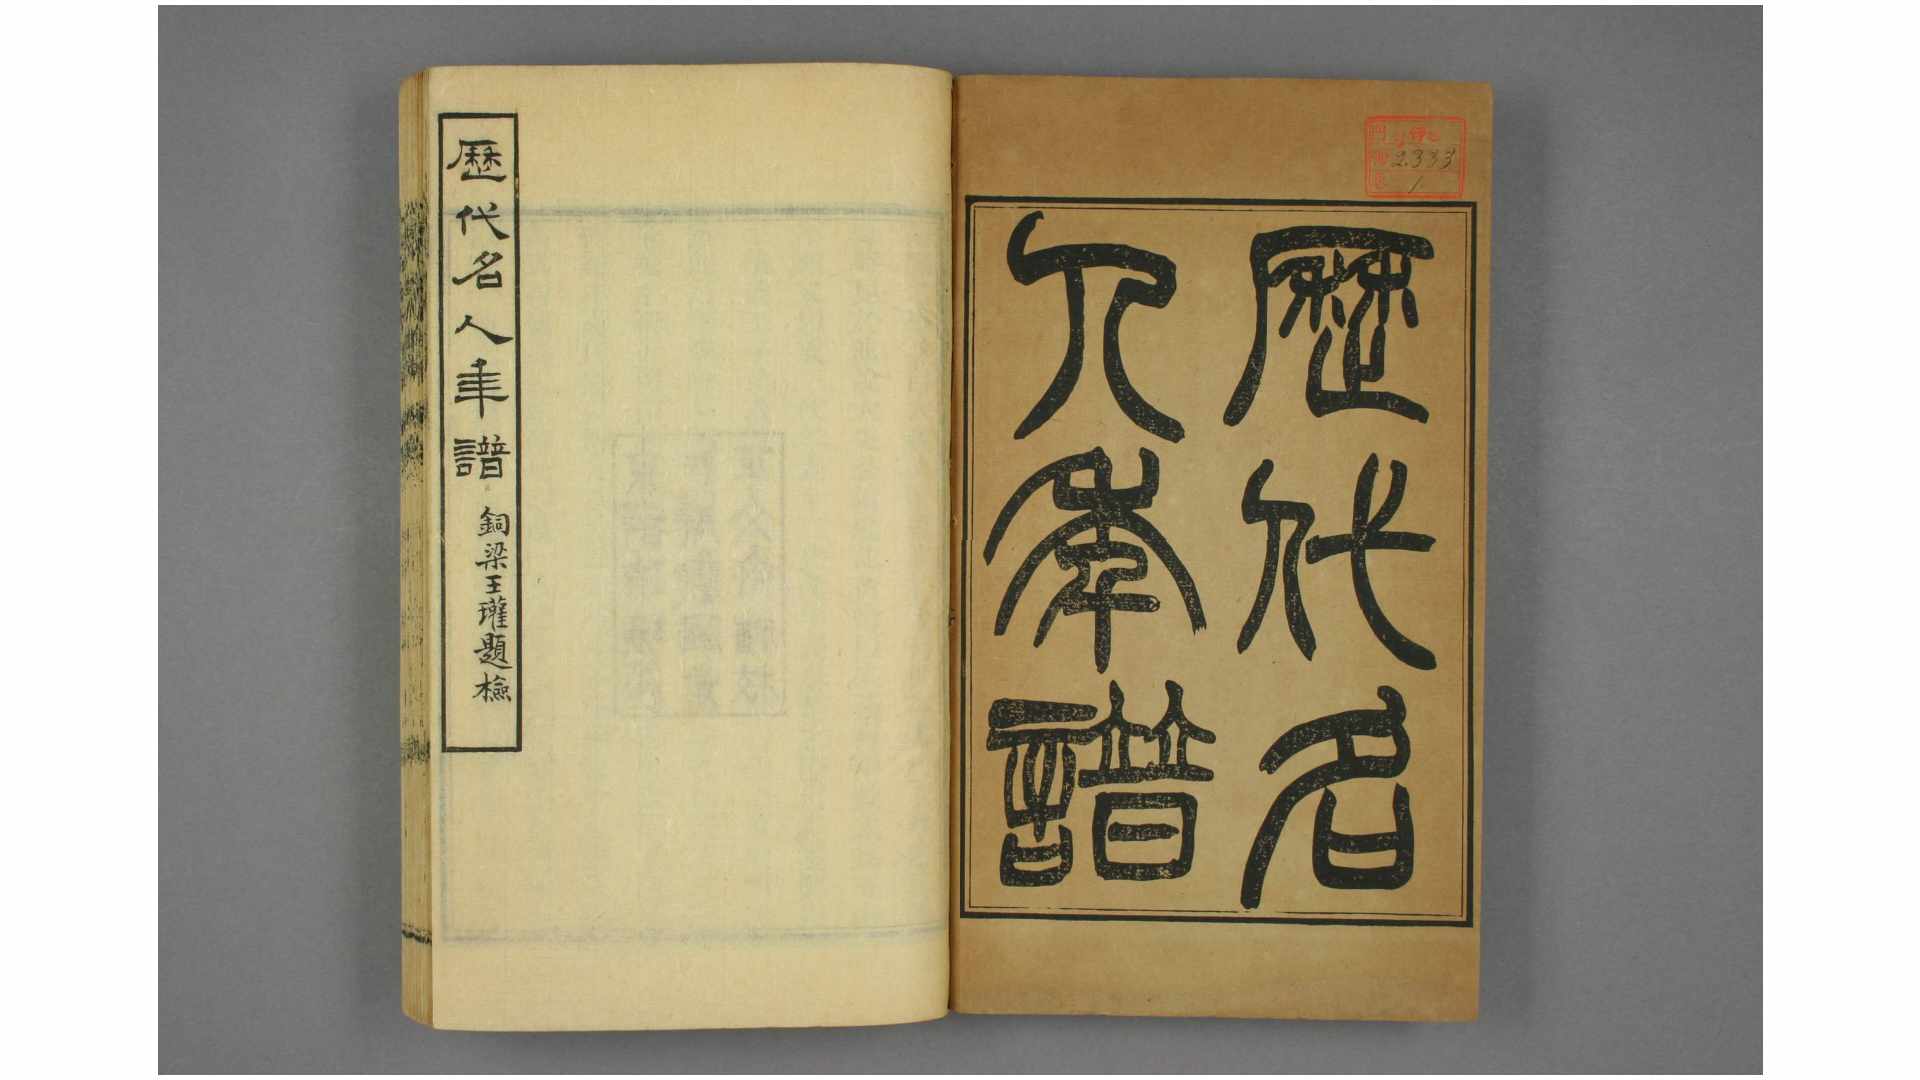 歷代名
人年譜
2333
1
歷代名人年譜
銅梁王瓘題檢